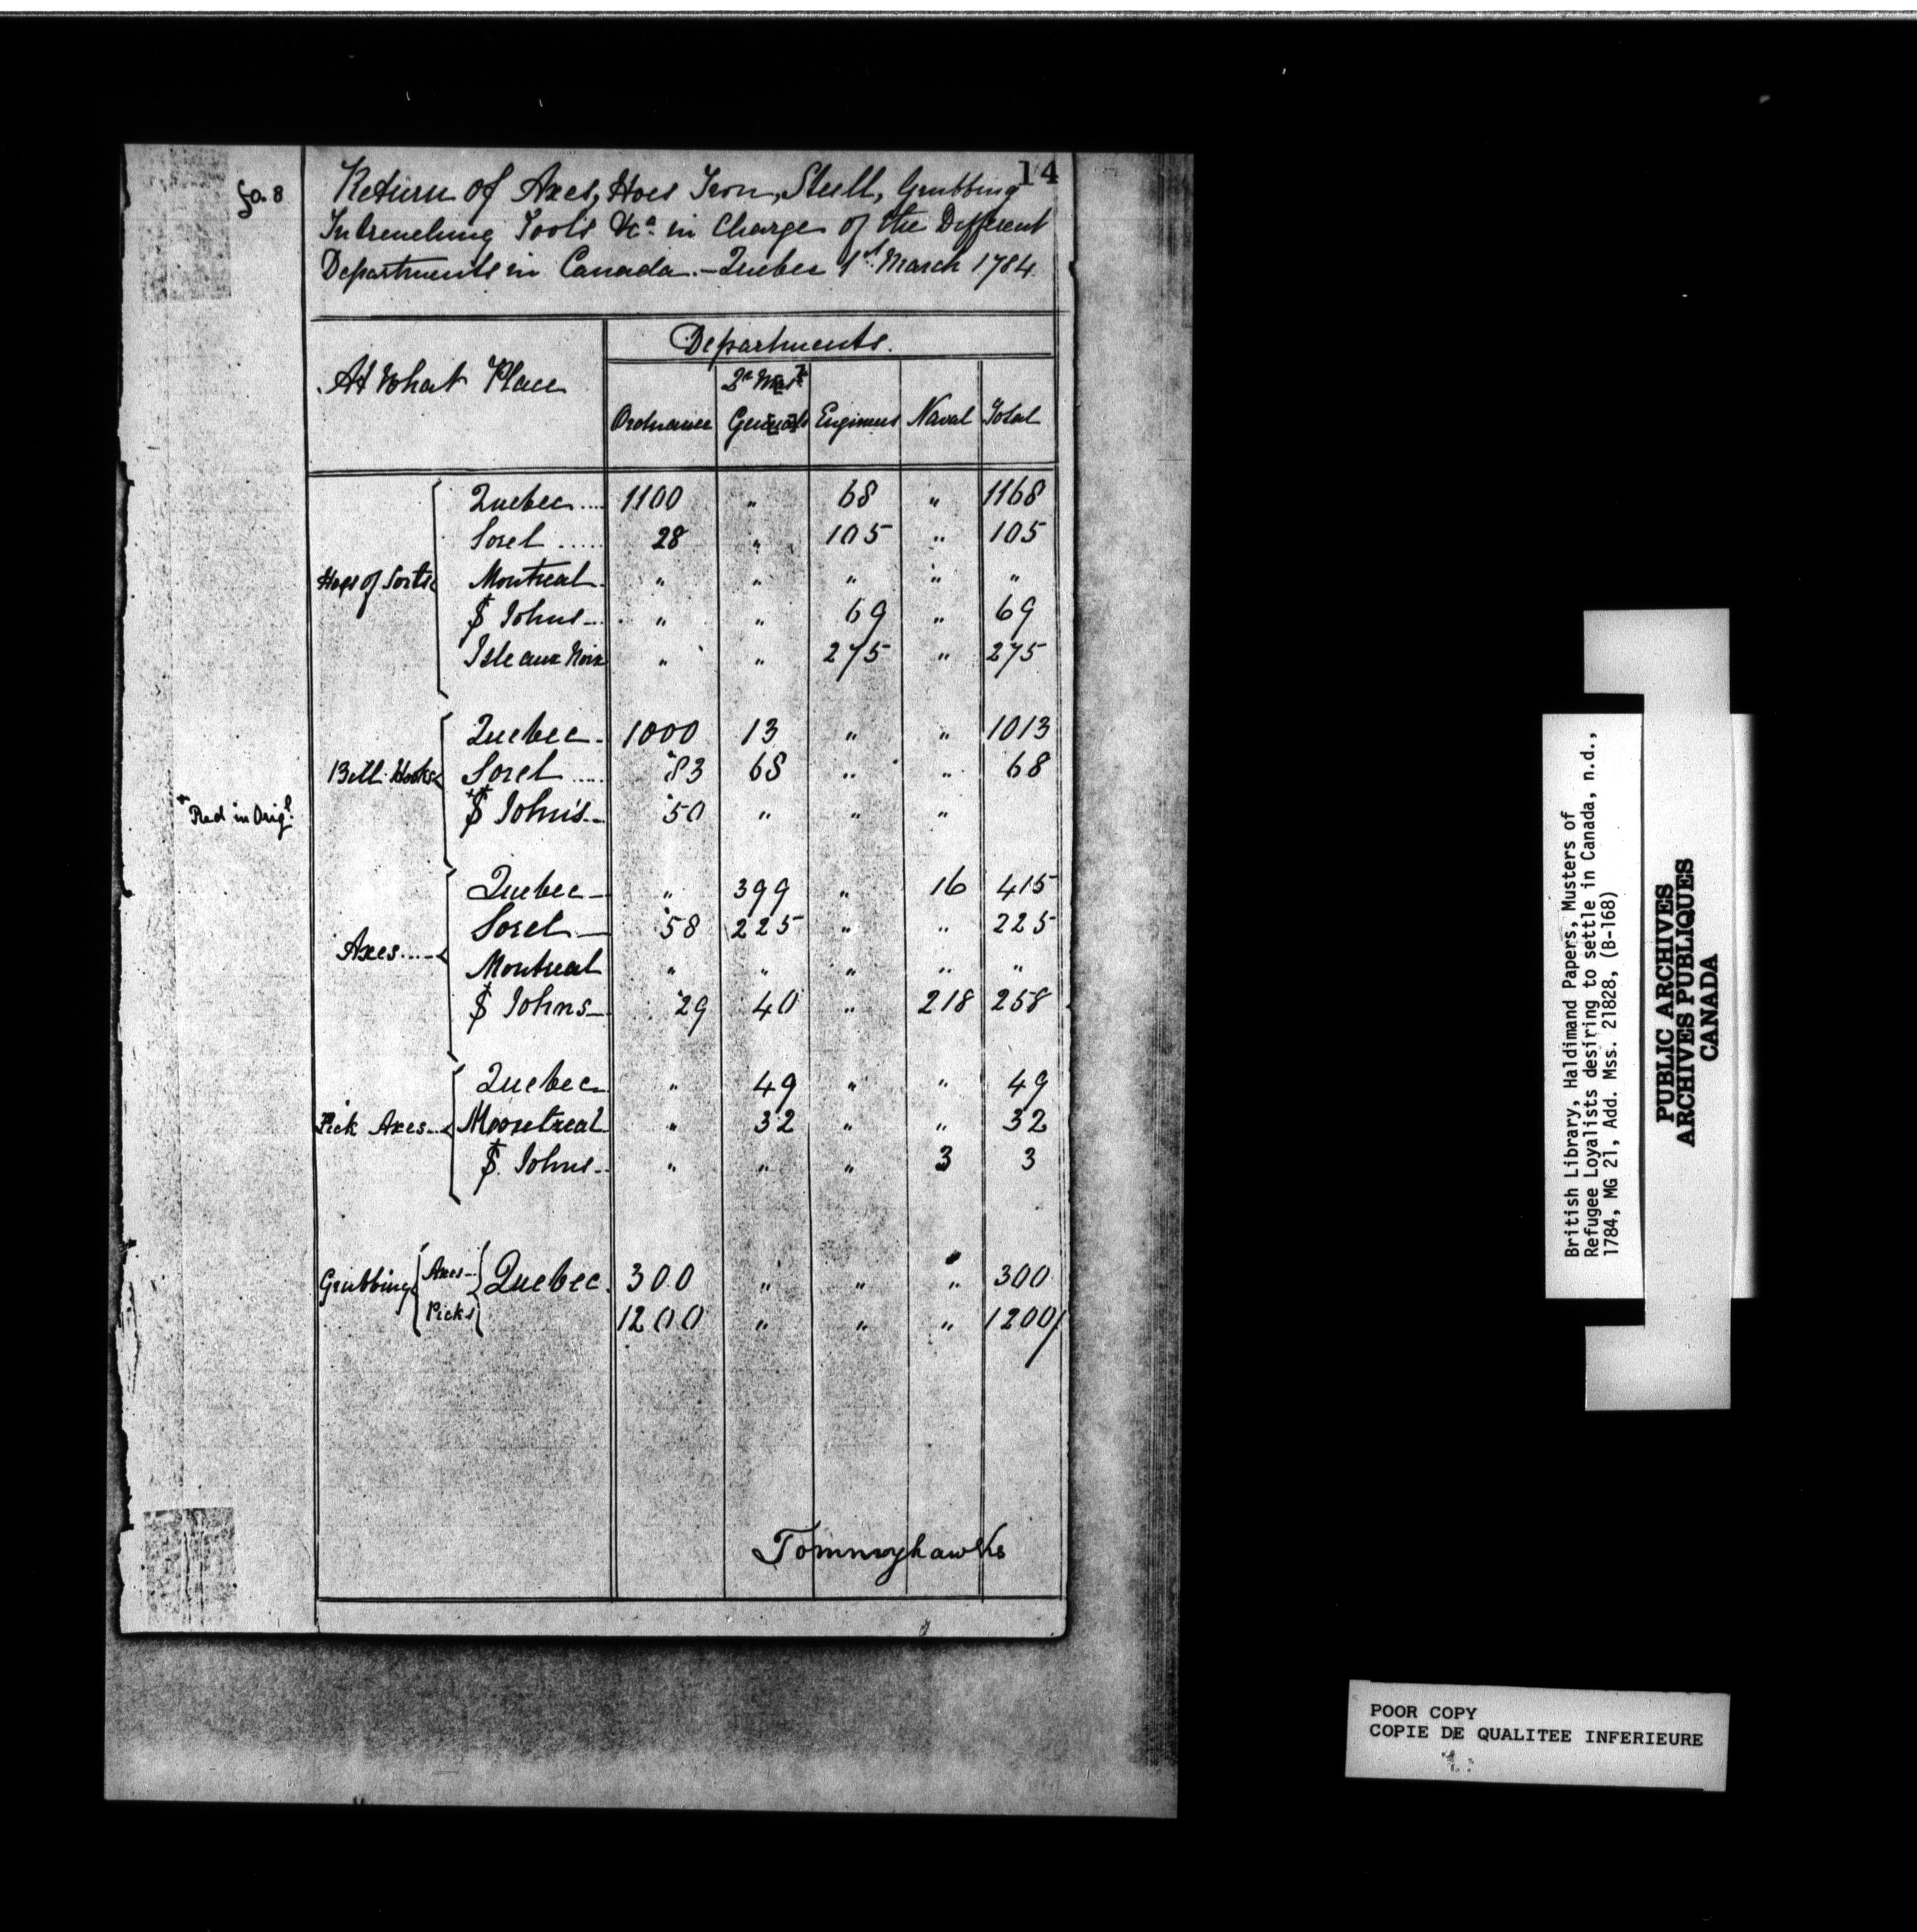 14
fo. 8
Return of Axes, Hoes Iron, Steell, Grubbing
Intrenching Tools &ca. in Charge of the Different
Departments in Canada.—Quebec 1st March 1784
At What Place
Departments.
Ordnance Qr. Mastr. Generals Engineers Naval Total
Hoes of Sorts
Quebec.... 1100 " 68 " 1168
Sorel ..... 28 " 105 " 105
Montreal. " " " " "
St Johns... " " 69 " 69
Isle aux Noix " " 275 " 275
Bill Hooks
Quebec. 1000 13 " " 1013
Sorel ..... 83 68 " " 68
St John's.. 50 " " "
* Red in Origl.
Axes....
Quebec — " 399 " 16 415
Sorel — 58 225 " " 225
Montreal " " " " "
St Johns — 29 40 " 218 258
Pick Axes...
Quebec " 49 " " 49
Montreal " 32 " " 32
St. Johns.. " " " 3 3
Grubbing
Axes.. Quebec. 300 " " " 300
Picks 1200 " " " 1200/
Tommyhawks
British Library, Haldimand Papers, Musters of
Refugee Loyalists desiring to settle in Canada, n.d.,
1784, MG 21, Add. Mss. 21828, (B-168)
PUBLIC ARCHIVES
ARCHIVES PUBLIQUES
CANADA
POOR COPY
COPIE DE QUALITEE INFERIEURE